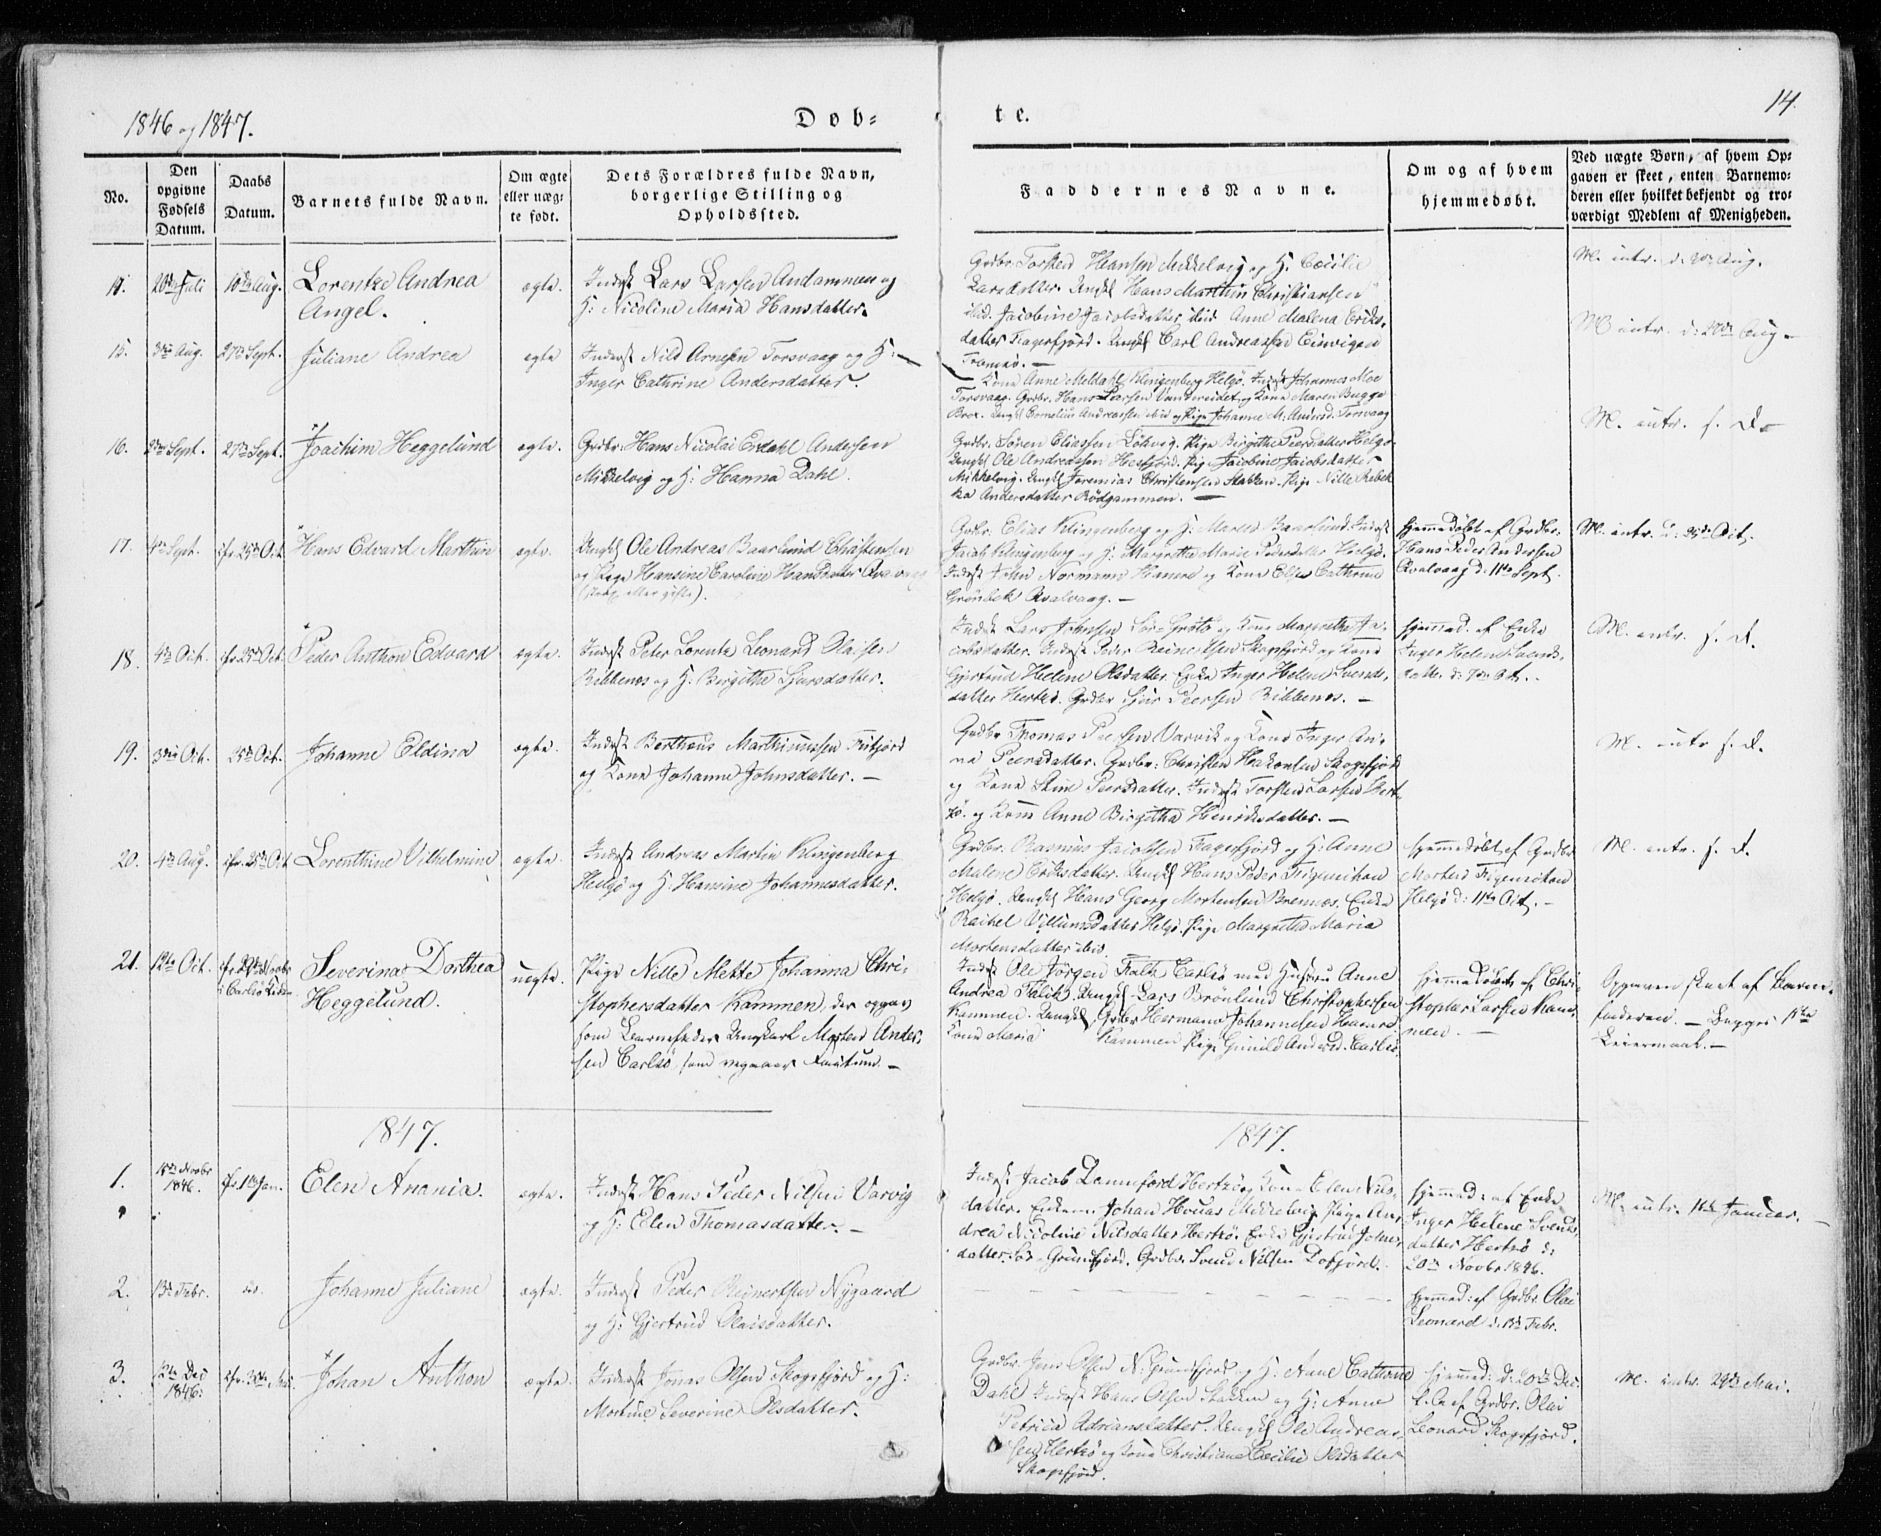 1846 og 1847.
Døb-
te.
14.
No.
Den opgivne Fødsels Datum.
Daabs Datum.
Barnets fulde Navn.
Om ægte eller uægte født.
Dets Forældres fulde Navn, borgerlige Stilling og Opholdssted.
Faddernes Navne.
Om og af hvem hjemmedøbt.
Ved uægte Børn, af hvem Opgaven er skeet, enten Barnemoderen eller hvilket bekjendt og troværdigt Medlem af Menigheden.
14. 20de Juli 10de Aug. Lorentze Andrea
Angel.
ægte.
Inderst Lars Larsen Andammen og
H: Nicoline Maria Hansdatter.
Grdbr. Torsten Hansen Mikkelvig og H. Cecilie
Larsdatter. Ungkl Hans Marthin Christiansen
ibid. Jacobine Jacobsdatter ibid Anne Malena Eriks-
datter Fagerfjord. Ungkl. Carl Andreassen Einvigen
Tromsø. —
15. 3die Aug. 27de Sept. Juliane Andrea
ægte
Inderst Nils Arnesen Torsvaag og H:
Inger Cathrine Andersdatter.
Kone Anne Meldahl Klingenberg Helgø. Inderst Johannes Moe
Torsvaag. Grdbr. Hans Larsen Vandereidet og Kone Maren Bugge
Ungkl Cornelius Andreassen ibid og Pige Johanne M. Andersd. Torsvaag
16. 2den Sept. 27de Sept. Joachim Heggelund
ægte.
Grdbr. Hans Nicolai Erdahl Andersen
Mikkelvig og H: Hanna Dahl.
Grdbr. Søren Eliassen Løkvig. Pige Birgithe Peersdatter Helgø
Ungkl Ole Andreassen Hesfjord. Pige Jacobine Jacobsdatter
Mikkelvig. Ungkl Jeremias Christensen Stakken. Pige Nille Rebek-
ka Andersdatter Rødgammen. —
M. intr. s. D.
17. 4de Sept. 25de Oct. Hans Edvard Marthin
ægte.
Ungkl Ole Andreas Baarlund Christensen
og Pige Hansine Caroline Hansdatter Qvalvaag
Grdbr. Elias Klingenberg og H: Maren Baarlund. Inderst
Jacob Klingenberg og H: Margrethe Marie Pedersdatter Helgø.
Inderst John Normann Hamre og Kone Else Cathrine
Grønbek Qvalvaag. —
Hjemmedøbt af Grdbr.
Hans Peder Andersen
Qvalvaag d: 11te Sept.
M. intr. d: 25de Oct.
18. 4de Oct. 25de Oct. Peder Anthon Edvard
ægte.
Inderst Peter Lorentz Leonard Olaisen
Ribbenes og H: Birgitha Sjursdatter.
Inderst Lars Johnsen Sør-Grøtø og Kone Margrethe Ja-
cobsdatter. Inderst Peder Reinertsen Skogsfjord og Kone
Gjertrud Helene Olsdatter. Enke Inger Helene Svends-
datter Hersø. Grdbr Sjur Peersen Ribbenes. —
Hjemmed. af Enke
Inger Helene Svends-
datter d: 7de Oct. -
M. intr. s. d.
19. 3die Oct. 25de Oct. Johanne Eldina
ægte.
Inderst Bertheus Marthinussen
og Kone Johanne Johnsdatter. —
Grdbr Thomas Peersen Varvik og Kone Inger An-
ne Peersdatter. Grdbr: Christen Haakonsen Skogsfjord
og Kone Stine Peersdatter. Inderst Torsten Larsen Hert-
sø. og Kone Anne Birgitha Henriksdatter. —
M. intr s. d.
20. 4de Aug. 25de Oct Lorenthine Vilhelmine
ægte.
Inderst Andreas Martin Klingenberg
Helgø og H: Hansine Johannesdatter.
Grdbr. Rasmus Jacobsen Fagerfjord og H: Anne
Malene Eriksdatter. Ungkl Hans Peder Figenschou
Helgø. Ungkl Hans Georg Mortensen Bremnes. Enke
Rachel Villumsdatter Helgø. Pige Margrethe Maria
Mortensdatter ibid.
Hjemmedøbt af Grdbr
Morten Figenschou
Helgø d: 11te Oct. -
M. intr. s. d.
21. 19de Oct. Severina Dorthea
Heggelund.
uægte.
Pige Nille Mette Johanna Chri-
stophersdatter Kammen, der opgav
som Barnefader Ungkarl Morten Ander-
sen Carlsø, som vegrer Factum. —
Inderst Ole Jørgen Falk Carlsø med Hustru Anne
Andrea Falk. Ungkl Lars Brønlund Christophersen
Kammen. Grdbr Hermann Johannesen Hamre
Kone Maria Kammen Pige Gunild Andersd. Carlsø.
Hjemmedøbt af Chri-
stopher Larsen Kam-
men. —
Opgaven skeet af Barne-
faderen. — Begges 1ste
Leiermaal. —
1847.
1847.
1. 15de Novbr 1846. 1ste Jan. Elen Anania.
ægte.
Inderst Hans Peder Nilsen Varvig
og H: Elen Thomasdatter. —
Inderst Jacob Dannefjord Hertsø og Kone Elen Nils-
datter. Enkem. Johan Hvaas Mikkelvig Pige An-
drea Nicoline Nilsdatter Hertsø. Enke Gjertrud Johns-
datter Sør-Grunfjord. Grdbr. Svend Nilsen Dofjord.
Hjemmed: af Enke
Inger Helene Svends-
datter Hertsø d:
20de Novbr 1846.
M. intr. 1ste Januar. —
2. 13de Febr. do. Johanne Juliane
ægte.
Inderst Peder Reinertsen Nygaard
og H: Gjertrud Olaisdatter.
Hjemmed: af Grdbr. Olai
Leonard d. 15de Febr.
3. 12te Dec 1846. Johan Anthon
ægte.
Inderst Jonas Olsen Skogsfjord og H:
Mortine Severine Olsdatter.
Grdbr. Jens Olsen N: Grunfjord og H. Anne Cathrine
Dahl Inderst Hans Olsen Stakken og H: Anne
Petrica Adriansdatter. Ungkl Ole Andreas-
sen Hertsø og Kone Christiane Cecilie Olsdatter
Skogsfjord.
Hjemmed: d: 20de Dec.
af Grdbr. Olai
Leonard Skogsfjord.
M. intr. 24de Mai.